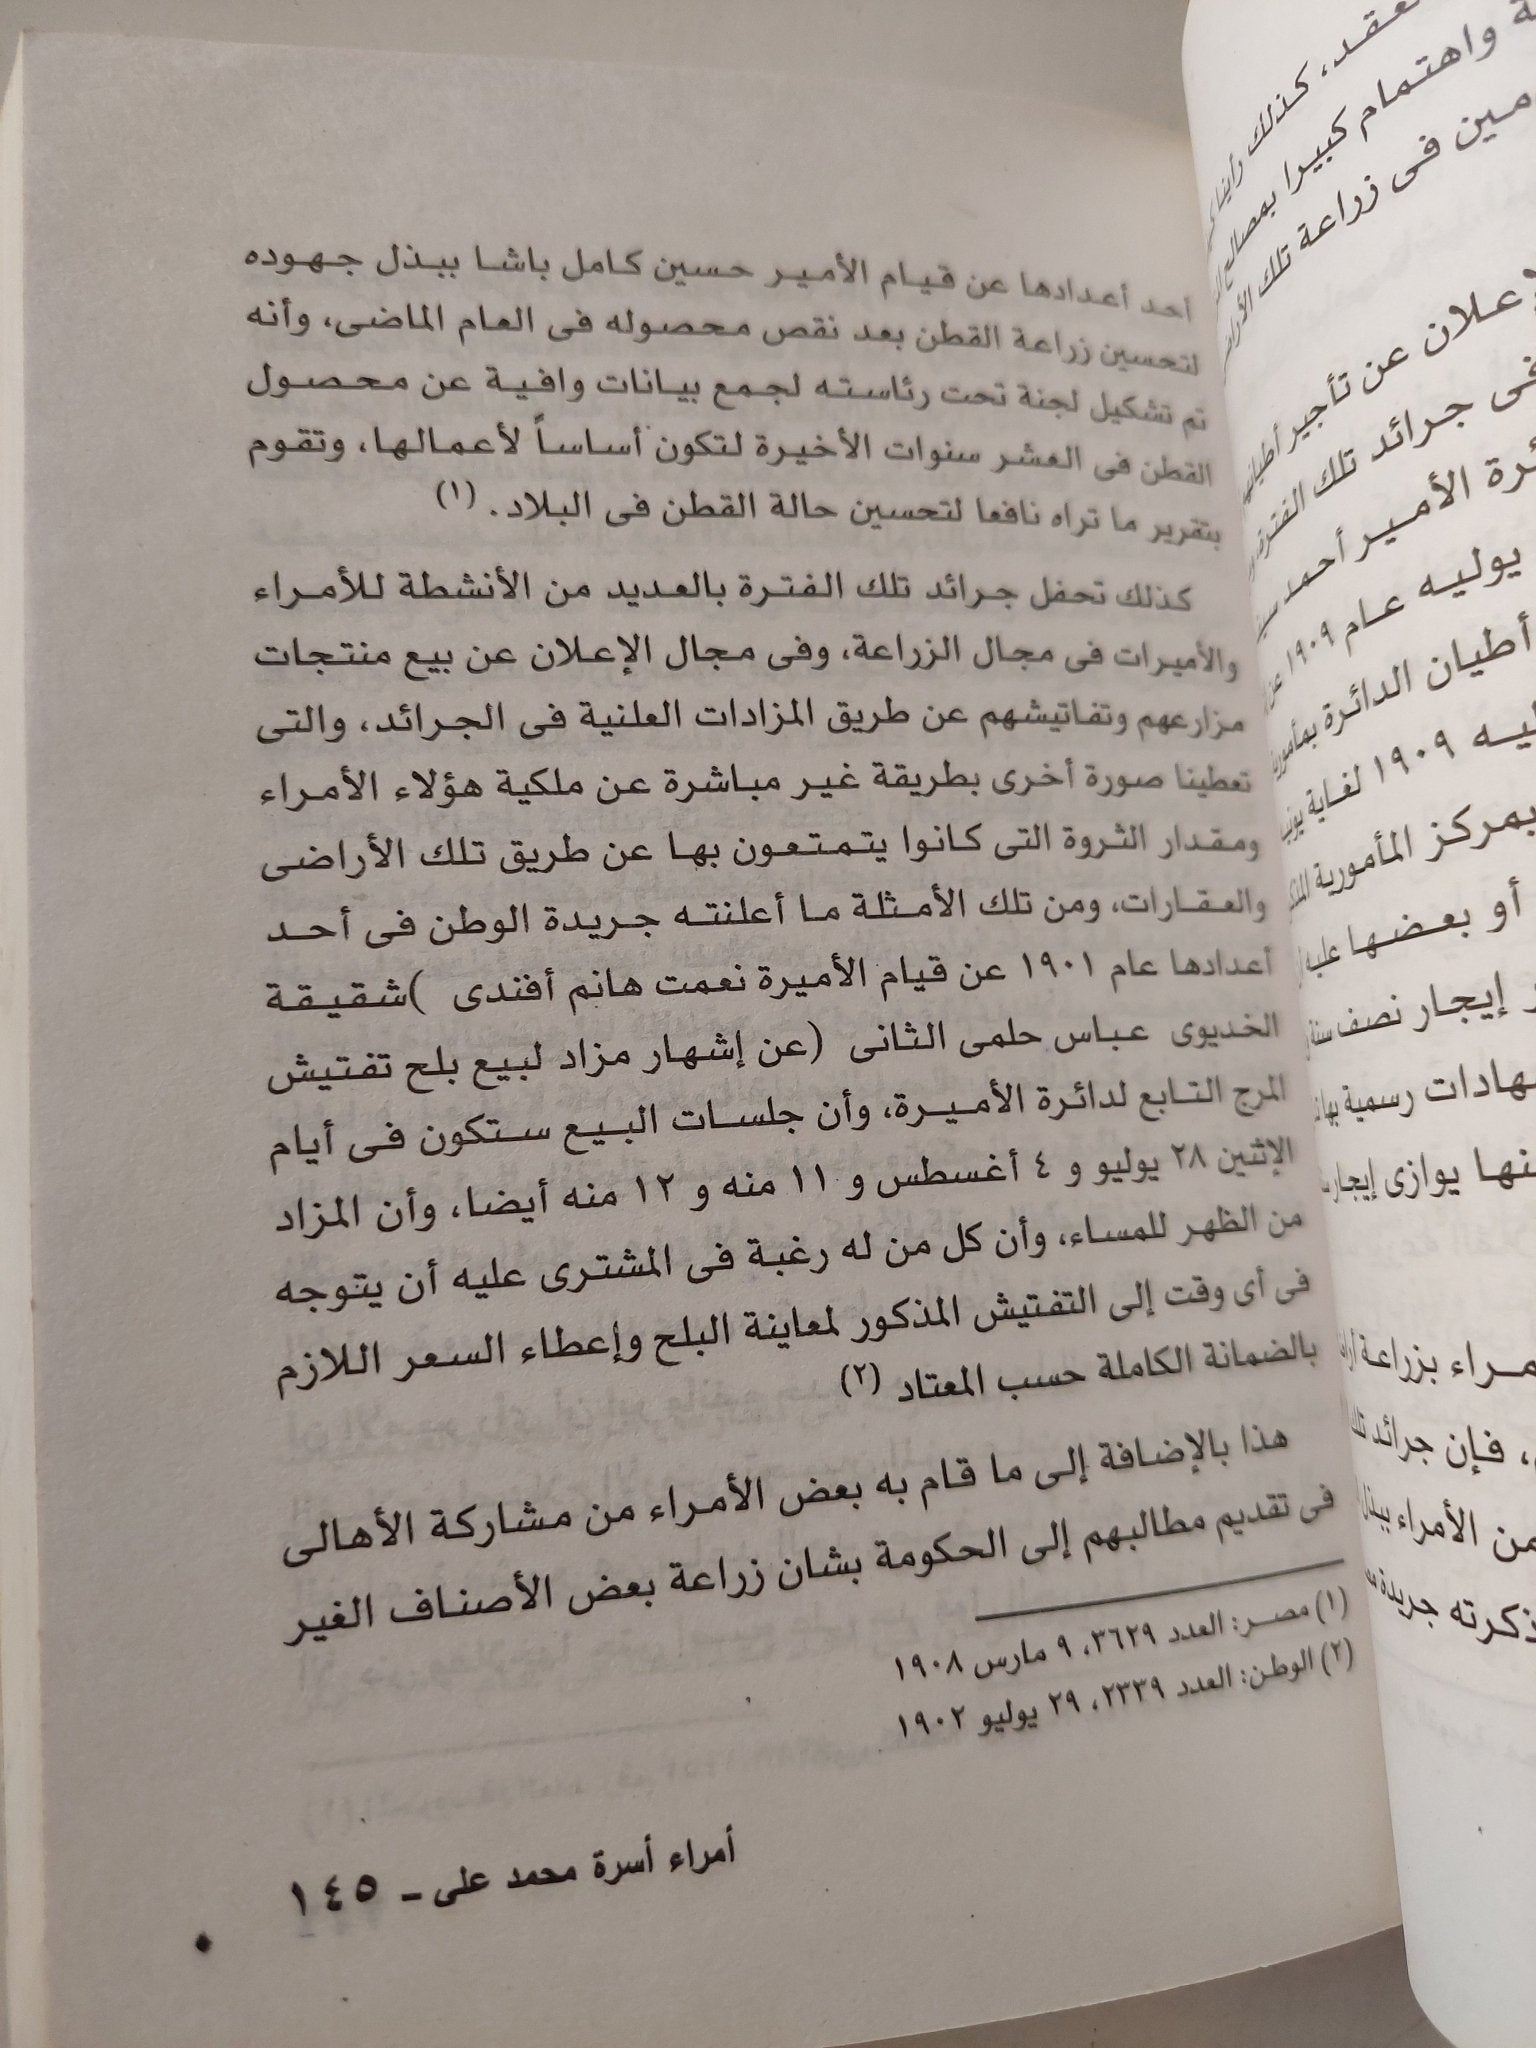 أحد أعدادها عن قيام الأمير حسين كامل باشا ببذل جهوده
لتحسين زراعة القطن بعد نقص محصوله فى العام الماضى، وأنه
تم تشكيل لجنة تحت رئاسته لجمع بيانات وافية عن محصول
القطن فى العشر سنوات الأخيرة لتكون أساساً لأعمالها، وتقوم
بتقرير ما تراه نافعا لتحسين حالة القطن فى البلاد. (١)
كذلك تحفل جرائد تلك الفترة بالعديد من الأنشطة للأمراء
والأميرات فى مجال الزراعة، وفى مجال الإعلان عن بيع منتجات
مزارعهم وتفاتيشهم عن طريق المزادات العلنية فى الجرائد، والتى
تعطينا صورة أخرى بطريقة غير مباشرة عن ملكية هؤلاء الأمراء
ومقدار الثروة التى كانوا يتمتعون بها عن طريق تلك الأراضى
والعقارات، ومن تلك الأمثلة ما أعلنته جريدة الوطن فى أحد
أعدادها عام ١٩٠١ عن قيام الأميرة نعمت هانم أفندى )شقيقة
الخديوى عباس حلمى الثانى (عن إشهار مزاد لبيع بلح تفتيش
المرج التابع لدائرة الأميرة، وأن جلسات البيع ستكون فى أيام
الإثنين ٢٨ يوليو و ٤ أغسطس و ١١ منه و ١٢ منه أيضا، وأن المزاد
من الظهر للمساء، وأن كل من له رغبة فى المشترى عليه أن يتوجه
فى أى وقت إلى التفتيش المذكور لمعاينة البلح وإعطاء السعر اللازم
بالضمانة الكاملة حسب المعتاد (٢)
هذا بالإضافة إلى ما قام به بعض الأمراء من مشاركة الأهالى
فى تقديم مطالبهم إلى الحكومة بشان زراعة بعض الأصناف الغير
(١) مصر: العدد ٣٦٢٩، ٩ مارس ١٩٠٨
(٢) الوطن: العدد ٢٣٣٩، ٢٩ يوليو ١٩٠٢
أمراء أسرة محمد على - ١٤٥
كذلك
واهتمام كبيرا بمصالح
فى زراعة تلك
عن تأجير
جرائد تلك الفترة
الأمير أحمد
يوليه عام ١٩٠٩
أطيان الدائرة
١٩٠٩ لغاية
بمركز المأمورية
أو بعضها
إيجار نصف سنة
رسمية
يوازى
بزراعة
فإن جرائد
من الأمراء
جريدة